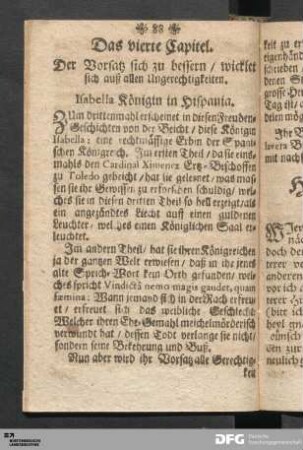 88
Das vierte Capitel.
Der Vorsatz sich zu bessern / wicklet
sich auß allen Ungerechtigkeiten.
Isabella Königin in Hispania.
ZUm drittenmahl erscheinet in diesen Freuden-
Geschichten von der Beicht / diese Königin
Isabella: eine rechtmässige Erbin der Spani-
schen Königreich. Im ersten Theil / da sie eins-
mahls den Cardinal Ximenez Ertz-Bischoffen
zu Toledo gebeicht / hat sie gelernet / was mas-
sen sie ihr Gewissen zu erforschen schuldig / wel-
ches sie in diesen dritten Theil so hell erzeigt / als
ein angezündtes Liecht auff einen guldenen
Leuchter / welches einen Königlichen Saal er-
leuchtet.
Im andern Theil / hat sie ihren Königreichen
ja der gantzen Welt erwiesen / daß in ihr jenes
alte Sprich-Wort kein Orth gefunden / wel-
ches spricht Vindictâ nemo magis gaudet, quam
fœmina: Wann jemand sich in der Rach erfreu-
et / erfreuet sich das weibliche Geschlecht
Welcher ihren Ehe-Gemahl meichelmörderisch
verwundt hat / dessen Todt verlange sie nicht /
sondern seine Bekehrung und Buß.
Nun aber wird ihr Vorsatz alle Gerechtig-
keit
DFG
Deutsche
Forschungsgemeinschaft